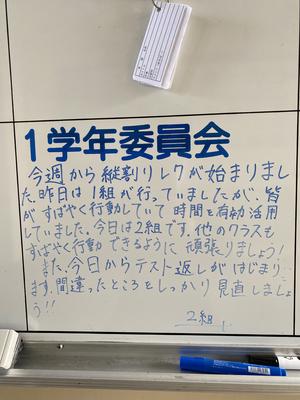 1学年委員会
今週から縦割りレクが始まりまし
た。昨日は1組が行っていましたが、皆
がすばやく行動していて時間を有効活用
していました。今日は2組です。他のクラスも
すばやく行動できるように頑張りましょう!
また、今日からテスト返しがはじまり
ます。間違ったところをしっかり見直しましょ
う!!
2組